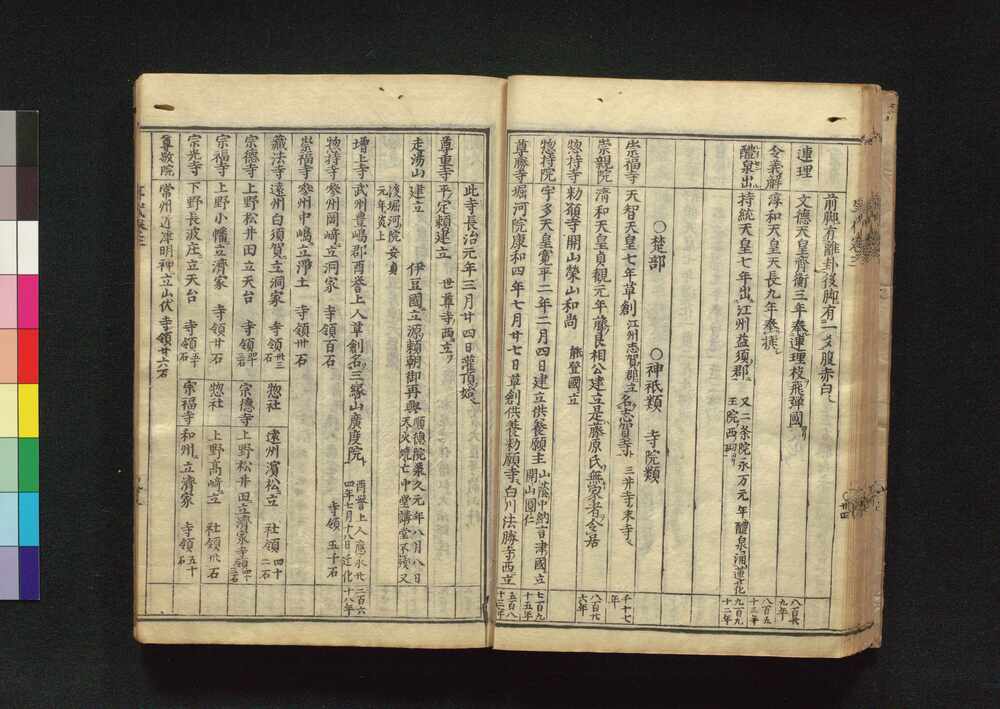 前脚有離卦後脚有一爻腹赤白
連理 文徳天皇齊衡三年奉連理枝飛彈國
八百
九年
令義解 淳和天皇天長九年奉
八百五
十三年
醴泉出 持統天皇七年出江州益須郡 又二条院永万元年醴泉涌蓮花
王院西
九百九
十二年
○楚部 ○神祇類 寺院類
崇福寺 天智天皇七年草創 江州志賀郡立名志賀寺 三井寺末寺
千十七
年
崇親院 清和天皇貞觀元年藤良相公建立是藤原氏無家者令居
八百
六年
惣持寺 勅額寺開山榮山和尚 能登國立
惣持院 宇多天皇寛平二年二月四日建立供養願主 山蔭中納言津國立
開山圓仁
七百九
十五年
尊勝寺 堀河院康和四年七月廿七日草創供養勅願寺白川法勝寺西立
五百八
十三年
此寺長治元年三月廿四日灌頂始
尊重寺 平定頼建立 世尊寺西立
走湯山 建立 伊豆國立源頼朝御再興 順徳院承久元年八月八日
天火燒亡中堂講堂不殘又
後堀河院安貞
元年炎上
増上寺 武州豊嶋郡酉誉上人草創名三縁山廣度院 酉誉上人應永廿
四年七月十八日迁化
寺領五十石
二百六
十八年
惣持寺 參州岡﨑立洞家 寺領百石
崇福寺 參州中嶋立淨土 寺領卅石
藏法寺 遠州白須賀立洞家 寺領廿三石 惣社 遠州濱松立 社領四十二石
宗徳寺 上野松井田立天台 寺領 宗徳寺 上野松井田立濟家寺領
宗福寺 上野小幡立濟家 寺領廿石 惣社 上野髙﨑立 社領卅石
宗光寺 下野長波庄立天台 寺領五十石 宗福寺 和州立濟家 寺領五十石
尊敬院 常州近津明神立山伏 寺領廿六石